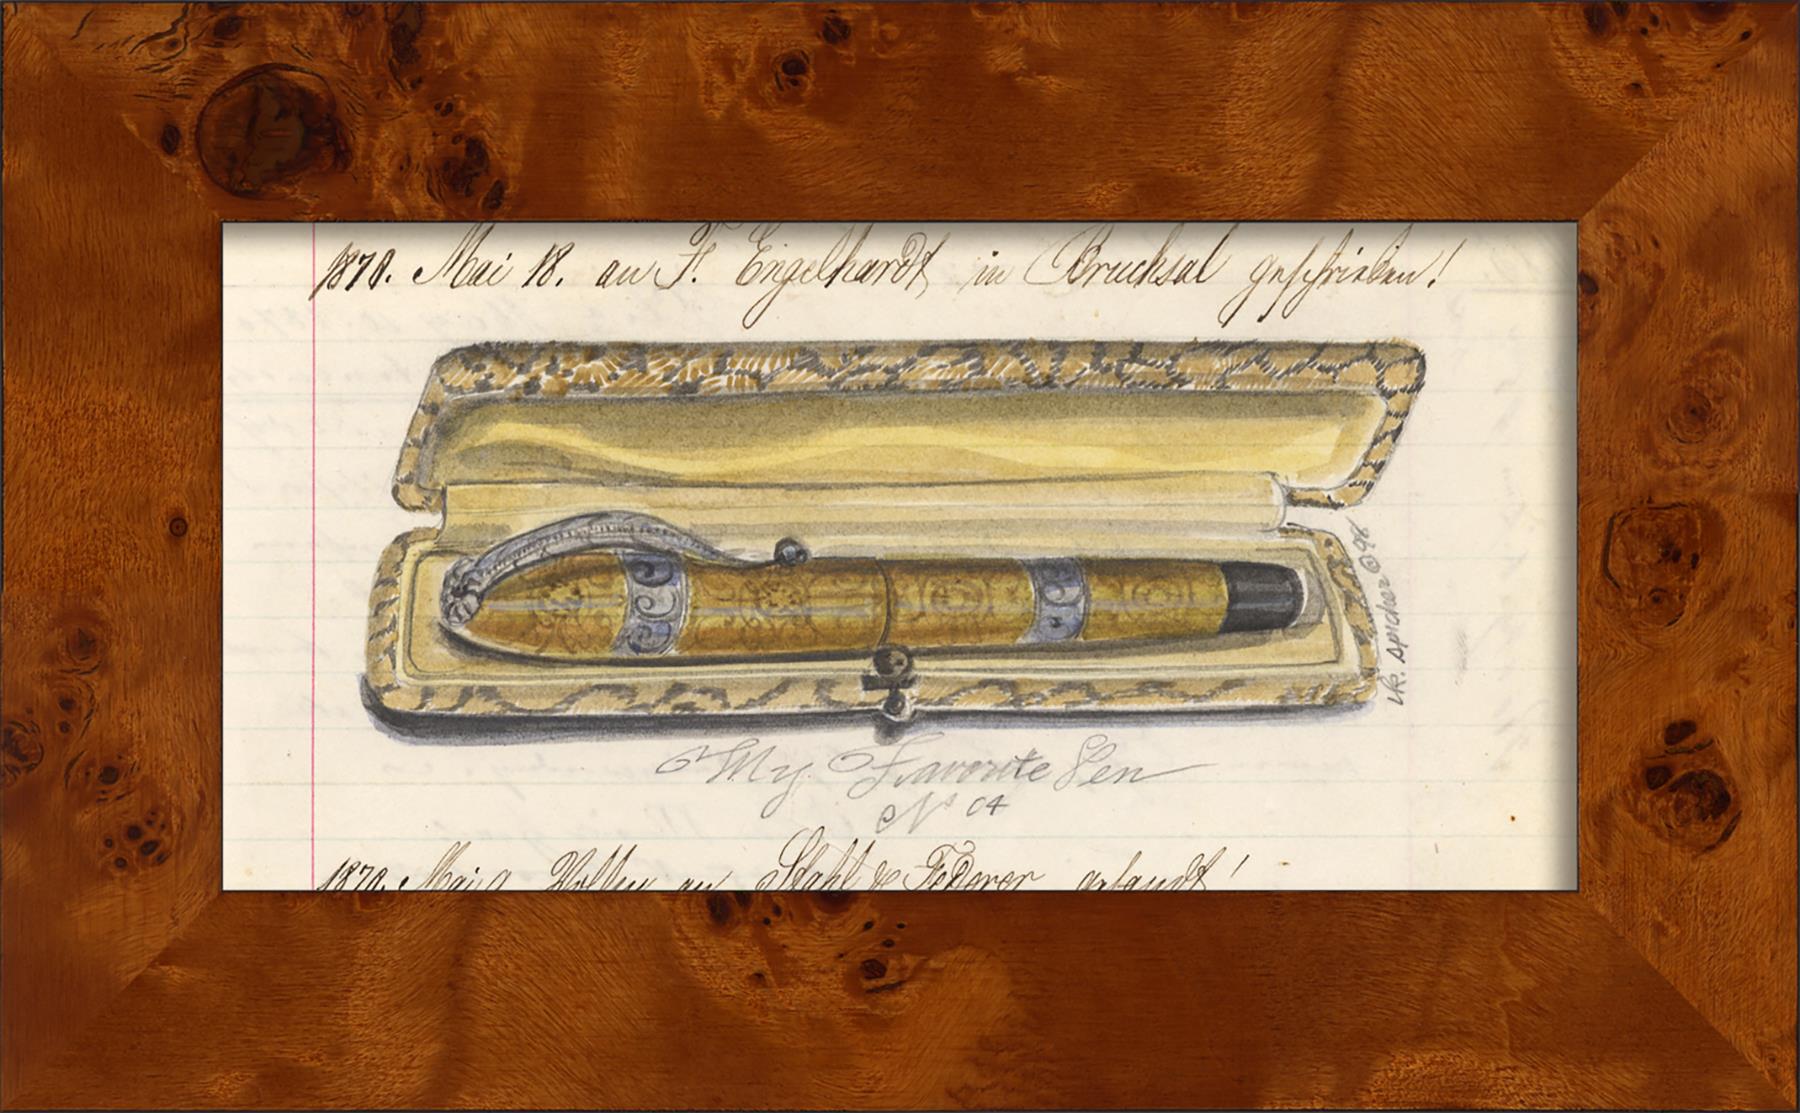 1870. Mai 18. an F. Engelhardt in Bruchsal geschrieben!
My Favorite Pen
No 04
1870. Mai 9 an Stahl & Federer gesandt!